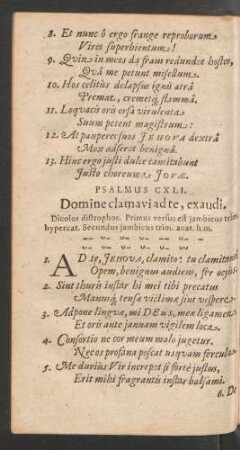 8. Et nunc ô ergo frange reproborum
Vires superbientum!
9. Quin in meos da fram redundet hostes,
Quâ me petunt misellum.
10. Hos cælitùs delapsus ignis atrâ
Premat, cremetq; flammâ.
11. Loquacis oris ersa virulenta
Suum petent magistrum:
12. At pauperes suos JEHOVA dextrâ
Mox adseret benignâ.
13. Hinc ergo justi dulce cantitabunt
Justo choreuma JOVÆ.
PSALMUS CXLI.
Domine clamavi ad te, exaudi.
Dicolos distrophos. Primus versus est jambicus trim.
hypercat. Secundus jambicus trim. acat. h.m.
1. AD te, JEHOVA, clamito: tu clamitanti
Opem, benignum audiens, fer ocyùs.
2. Sint thuris instar hi mei tibi precatus
Manusq; tensa victimæ sint vesperæ.
3. Adpone linguæ, mi DEus, meæ ligamen
Et oris ante januam vigilem loca.
4. Consortio ne cor meum malo jugetur.
Necos profana poscat usquam fercula.
5. Me duriùs Vir increpet si fortè justus,
Erit mihi fragrantis instar balsami.
6. De